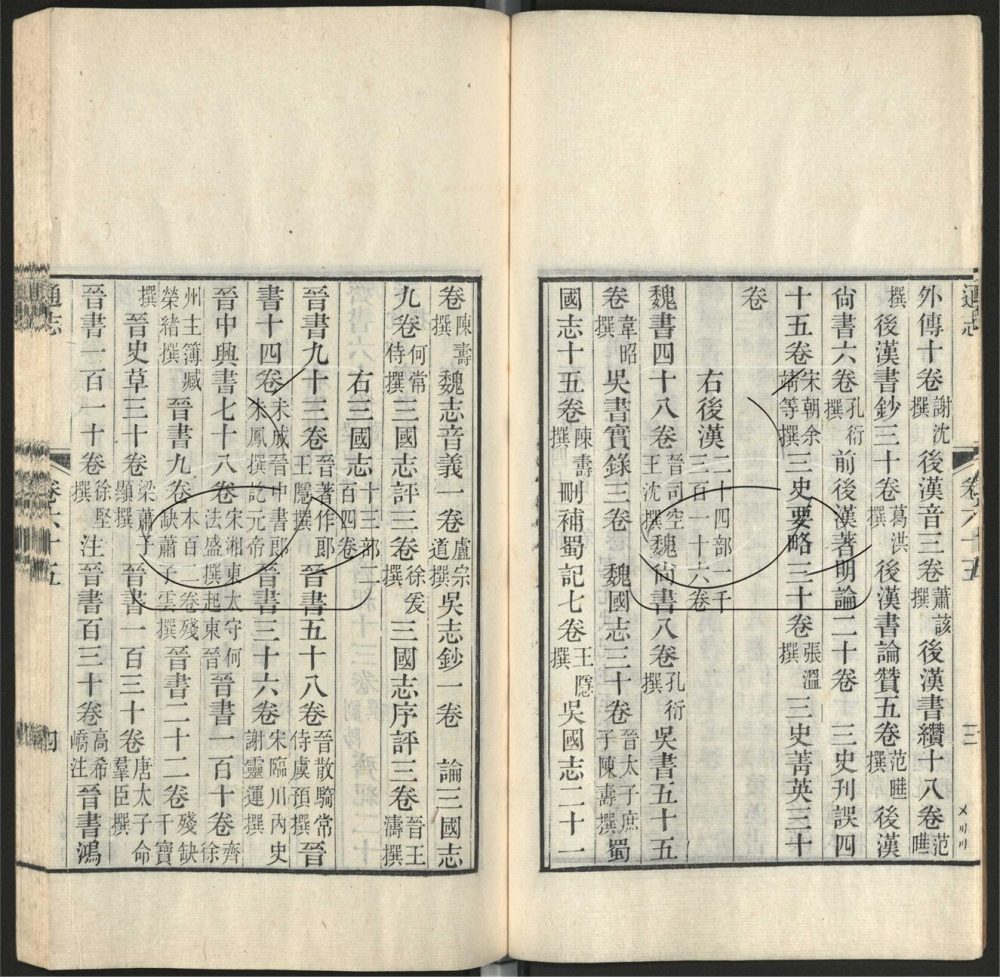 外傳十卷謝沈撰後漢音三卷蕭該撰後漢書纘十八卷范曄
撰後漢書鈔三十卷葛洪撰後漢書論贊五卷范曄撰後漢
尙書六卷孔衍撰前後漢著明論二十卷三史刊誤四
十五卷宋朝余靖等撰三史要略三十卷張溫撰三史菁英三十
卷
右後漢二十四部一千三百一十六卷
魏書四十八卷晉司空王沈撰魏尙書八卷孔衍撰吳書五十五
卷韋昭撰吳書實錄三卷魏國志三十卷晉太子庶子陳壽撰蜀
國志十五卷陳壽撰刪補蜀記七卷王隱撰吳國志二十一
通志
卷六十五
三
卷陳壽撰魏志音義一卷盧宗道撰吳志鈔一卷論三國志
九卷何常侍撰三國志評三卷徐爰撰三國志序評三卷晉王濤撰
右三國志十三部二百四卷
晉書九十三卷晉著作郎王隱撰晉書五十八卷晉散騎常侍虞預撰晉
書十四卷未成晉中書郎朱鳳撰訖元帝晉書三十六卷宋臨川內史謝靈運撰
晉中興書七十八卷宋湘東太守何法盛撰起東晉晉書一百十卷齊徐
州主簿臧榮緒撰晉書九卷本百二卷殘缺蕭子雲撰晉書二十二卷殘缺干寶
撰晉史草三十卷梁蕭子顯撰晉書一百三十卷唐太子命羣臣撰
晉書一百一十卷徐堅撰注晉書百三十卷高希嶠注晉書鴻
通志
卷六十五
四